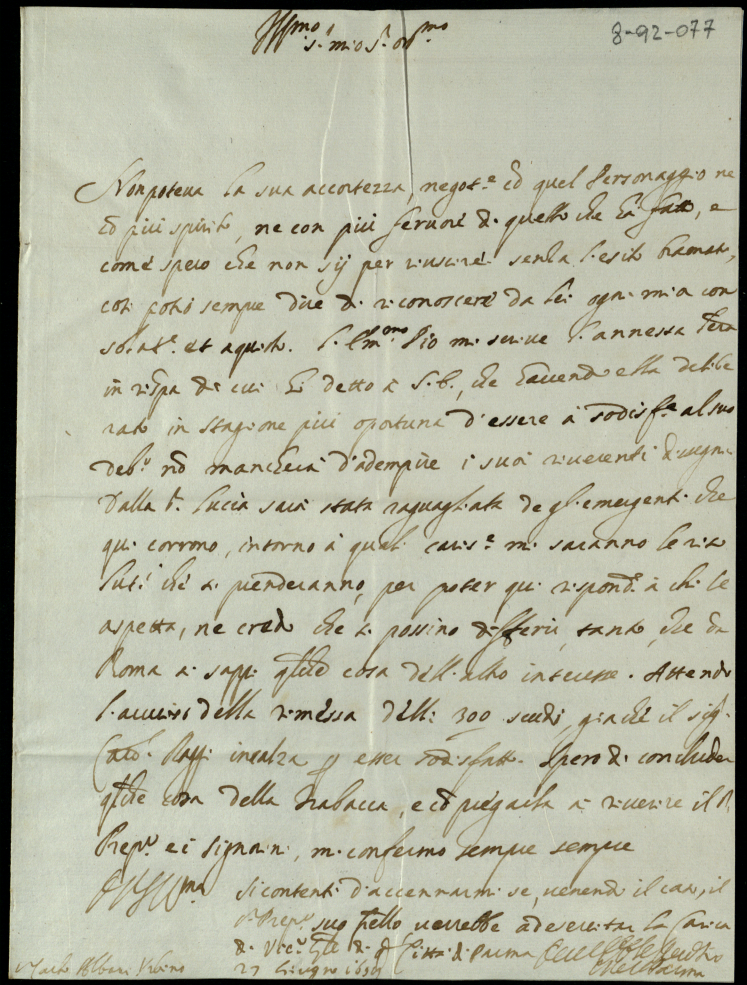 8-92-077
Ill.mo S.r mio S.r oss.mo
Non poteva la sua accortezza, negot.e cõ quel Personaggio ne
cõ più spirito, ne con più fervore di quello che hà fatto, e
come spero che non sij per riuscire senza l'esito bramato,
così potrò sempre dire di riconoscere da lei ogni mia con
solat.e et aquisto. L'Em.mo Pio mi scrive l'annessa lr̃a
in risp.a di cui hò detto à S.E., che havendo ella delibe
rato in stagione più oportuna d'essere à sodisf.e al suo
deb.o nõ mancherà d'adempire i suoi riverenti
Dalla S. Lucia sarà stata raguagliata degl'emergenti che
qui corrono, intorno à quali cariss.e mi saranno le riso
lut.i che si prenderanno, per poter qui rispond.e à chi le
aspetta, ne credo che si possino differir, tanto, che da
Roma si sappi qlche cosa dell'altro interesse. Attendo
l'avviso della rimessa delli 300 scudi, giache il sig.
inealza p esser sodisfatto. Spero di concluder
qlche cosa della trabacca, e cõ pregarla à riverire il S.
Prep.o e i Signorini, mi confermo sempre sempre
Di V.S. Ill.ma Si contenti d'accennarmi se, venendo il caso, il
S.r Prep.o suo frello verrebbe ad esercitar la Carica
di Vic.o Gñle di q Città di Parma
27 Giugno
Carlo Albani Urbino